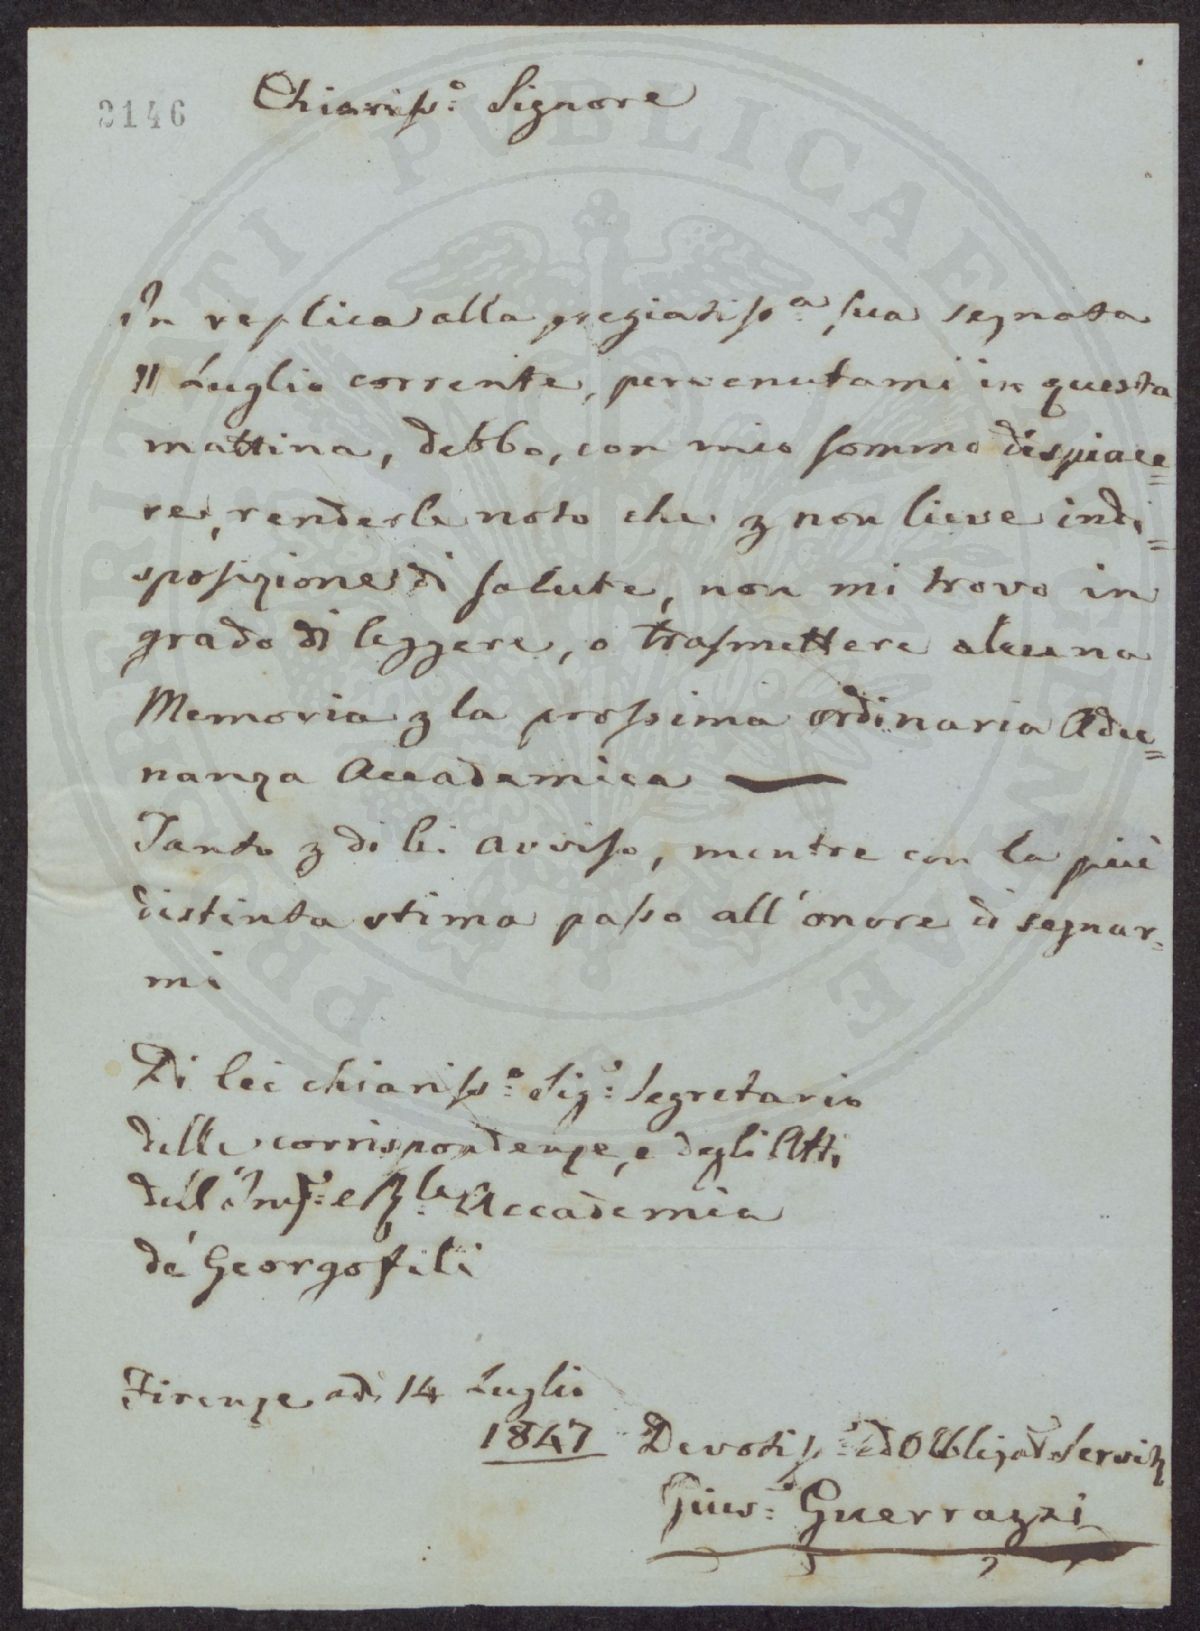 2146
Chiariss.º Signore
In replica alla pregiatiss.ª sua segnata
11 Luglio corrente, pervenutami in questa
mattina, debbo, con mio sommo dispiace=
re, renderle noto che p non lieve indi=
sposizione di salute, non mi trovo in
grado di leggere, o trasmettere alcuna
Memoria p la prossima ordinaria Adu=
nanza Accademica —
Tanto p di lei avviso, mentre con la più
distinta stima passo all'onore di segnar=
mi
Di lei chiariss.º Sig.r Segretario
delle corrispondenze, e degli Atti
dell'Imp.e R.le Accademia
de' Georgofili
Firenze adì 14 Luglio
1847
Devotiss.º ed Obbligat.º Servit.
Gius.e Guerrazzi
PROSPERITATI PUBLICAE AUGENDAE